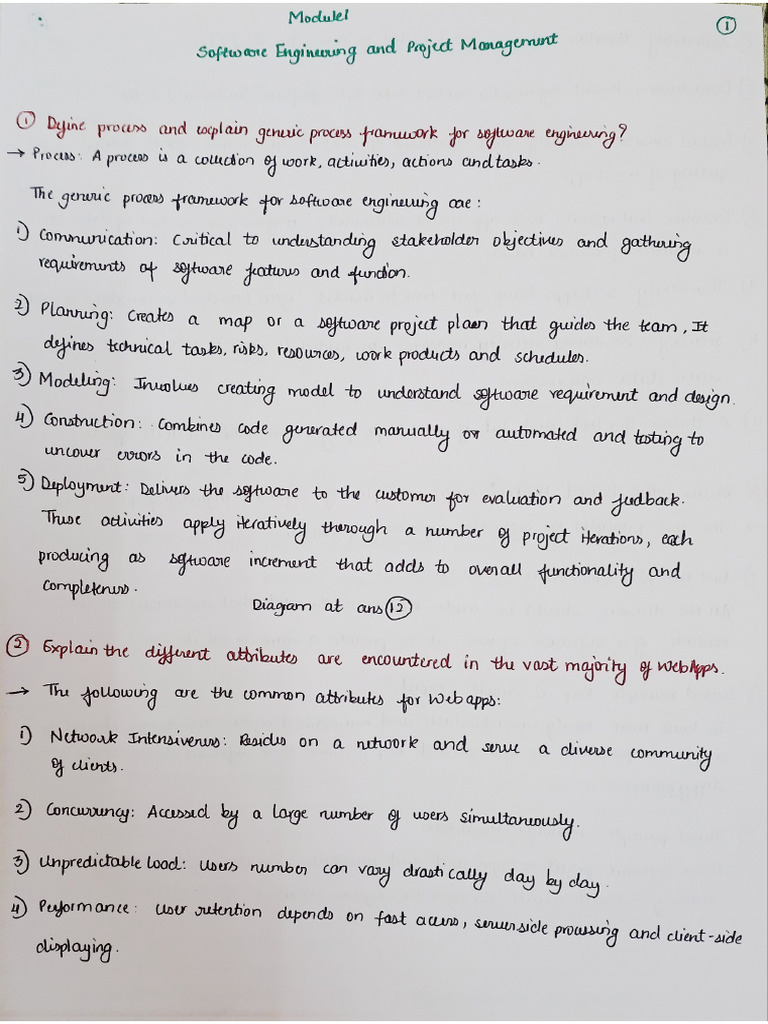 Module1
①
Software Engineering and Project Management
① Define process and explain generic process framework for software engineering?
→ Process: A process is a collection of work, activities, actions and tasks.
The generic process framework for software engineering are:
1) Communication: Critical to understanding stakeholder objectives and gathering
requirements of software features and function.
2) Planning: Creates a map or a software project plan that guides the team, It
defines technical tasks, risks, resources, work products and schedules.
3) Modeling: Involves creating model to understand software requirement and design.
4) Construction: Combines code generated manually or automated and testing to
uncover errors in the code.
5) Deployment: Delivers the software to the customer for evaluation and feedback.
These activities apply iteratively through a number of project iterations, each
producing as software increment that adds to overall functionality and
completeness.
Diagram at ans ⑫
② Explain the different attributes are encountered in the vast majority of WebApps.
→ The following are the common attributes for Web apps:
1) Network Intensiveness: Resides on a network and serve a diverse community
of clients.
2) Concurrency: Accessed by a large number of users simultaneously.
3) Unpredictable load: Users number can vary drastically day by day.
4) Performance: User retention depends on fast access, server side processing and client-side
displaying.